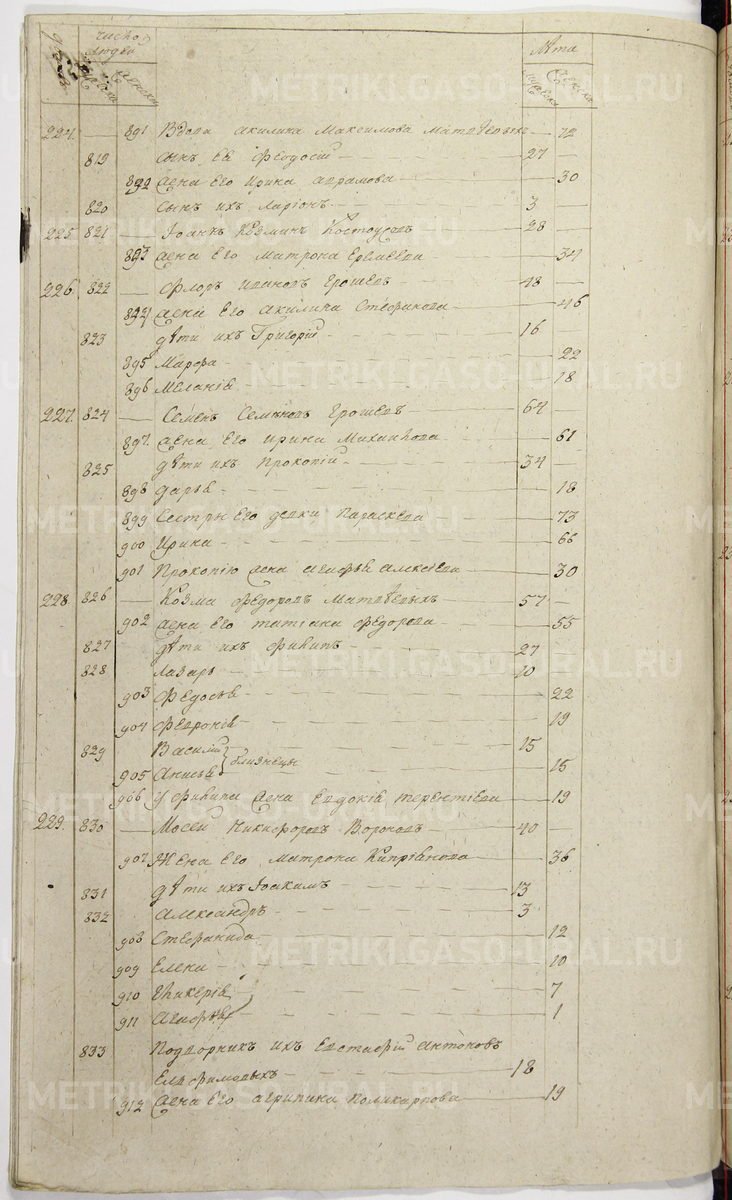 число людей
Лѣта
мужеска женска
224. 891 Вдова акилина Максимова Матвѣевыхъ 72
819 сынъ Ея Феодосий 27
892 жена Его Ирина аврамова 30
820 Сынъ ихъ Ларионъ 3
225. 821 Іоанъ Козминъ Костоусовъ 28
893 жена Его Матрона Еремеева 34
226. 822 Флоръ Ивановъ Ерошевъ 48
894 жена Его акилина Стефанова 46
823 дѣти ихъ Григорий 16
895 Марфа 22
896 Меланія 18
227. 824 Семенъ Семеновъ Ерошевъ 64
897. жена Его Ирина Михаилова 61
825 дѣти ихъ Прокопий 34
898 дарья 18
899 Сестры Его девки Параскева 73
900 Ирина 66
901 Прокопию жена агафья алексеева 30
228. 826 Козма Федоровъ Матвѣевыхъ 57
902 жена Его татіана Федорова 55
827 дѣти ихъ Филипъ 27
828 лазарь 10
903 Федосья 22
904 Феврония 19
829 Василий 15
близнецы
905 Анисья 15
906 У Филипа жена Евдокія терентіева 19
229. 830 Мосей Никифоровъ 40
907 Жена Его Матрона Кипріянова 36
831 дѣти ихъ Іоакимъ 13
832 александръ 3
908 Стефанида 12
909 Елена 10
910 Гликерія 7
911 Агафья 1
833 Подворникъ ихъ Евстафий антоновъ
Елфимовыхъ 18
912 жена Его агрипина Поликарпова 19
METRIKI.GASO-URAL.RU